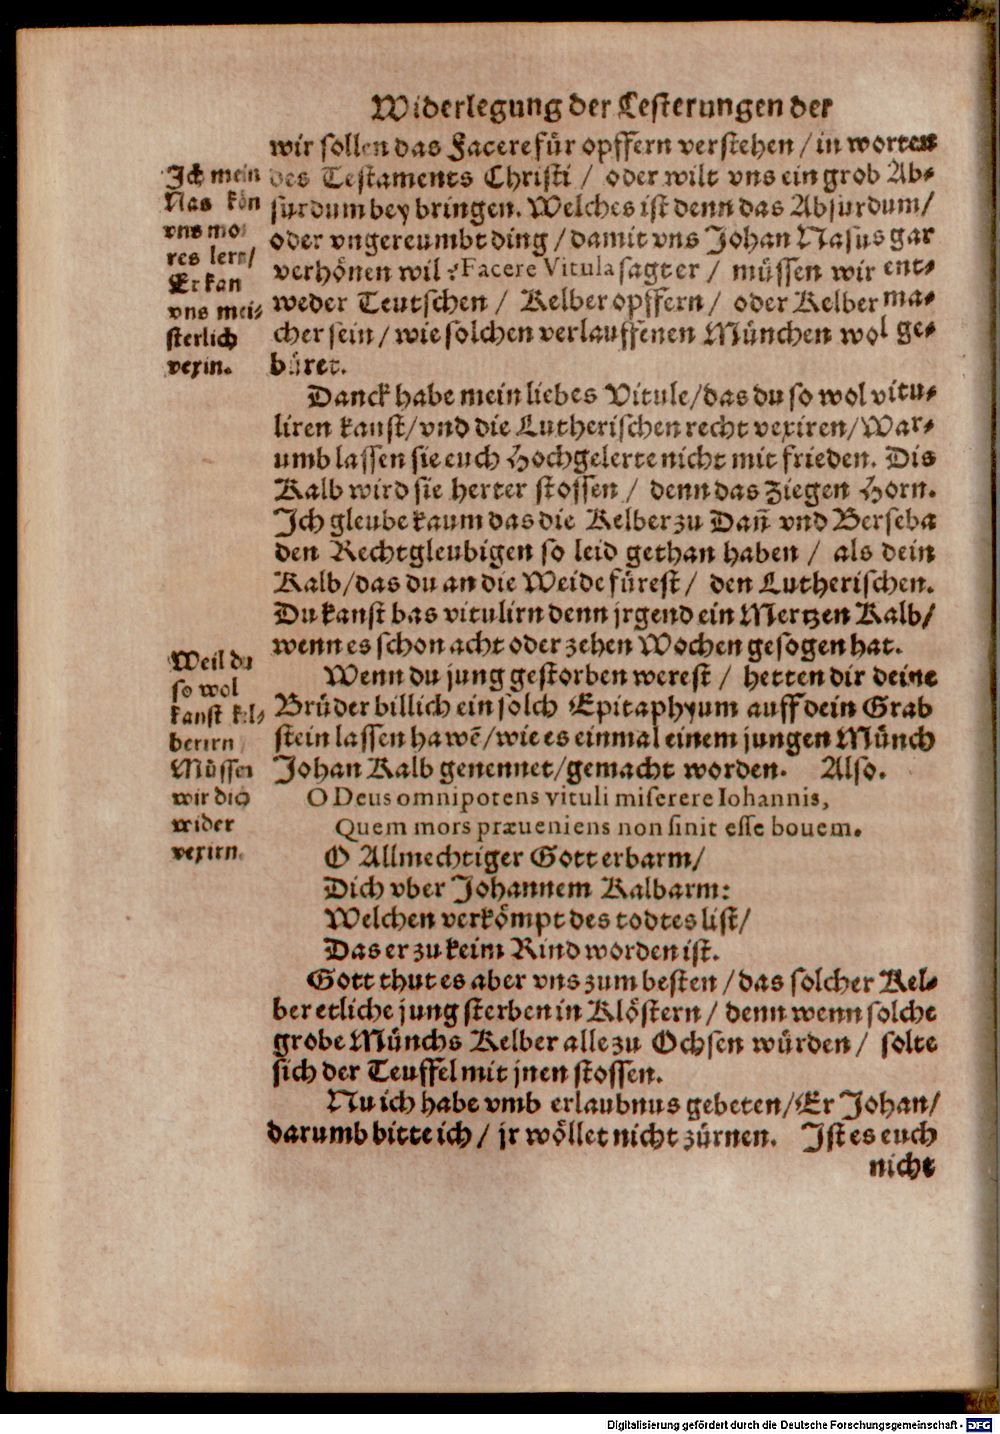 Widerlegung der Lesterungen der
wir sollen das Facere für opffern verstehen / in worten
des Testaments Christi / oder wilt vns ein grob Ab⸗
surdum bey bringen. Welches ist denn das Absurdum/
oder vngereumbt ding / damit vns Johan Nasus gar
verhönen wil? Facere Vitula sagt er / müssen wir ent⸗
weder Teutschen / Kelber opffern / oder Kelber ma⸗
cher sein / wie solchen verlauffenen München wol ge⸗
büret.
Ich mein
Nas kön
vns mo⸗
res lern/
Er kan
vns mei⸗
sterlich
vexirn.
Danck habe mein liebes Vitule/das du so wol vitu⸗
liren kanst/vnd die Lutherischen recht vexiren/War⸗
umb lassen sie euch Hochgelerte nicht mit frieden. Dis
Kalb wird sie herter stossen / denn das Ziegen Horn.
Ich gleube kaum das die Kelber zu Dan̄ vnd Berseba
den Rechtgleubigen so leid gethan haben / als dein
Kalb/das du an die Weide fürest / den Lutherischen.
Du kanst bas vitulirn denn jrgend ein Mertzen Kalb/
wenn es schon acht oder zehen Wochen gesogen hat.
Weil du
so wol
kanst kel⸗
berirn
Müssen
wir dich
wider
vexirn.
Wenn du jung gestorben werest / hetten dir deine
Brüder billich ein solch Epitaphyum auff dein Grab
stein lassen hawē/wie es einmal einem jungen Münch
Johan Kalb genennet/gemacht worden. Also.
O Deus omnipotens vituli miserere Iohannis,
Quem mors præueniens non sinit esse bouem.
O Allmechtiger Gott erbarm/
Dich vber Johannem Kalbarm:
Welchen verkömpt des todtes list/
Das er zu keim Rind worden ist.
Gott thut es aber vns zum besten / das solcher Kel⸗
ber etliche jung sterben in Klöstern / denn wenn solche
grobe Münchs Kelber alle zu Ochsen würden / solte
sich der Teuffel mit jnen stossen.
Nu ich habe vmb erlaubnus gebeten/Er Johan/
darumb bitte ich / jr wöllet nicht zürnen. Ist es euch
nicht
Digitalisierung gefördert durch die Deutsche Forschungsgemeinschaft - DFG